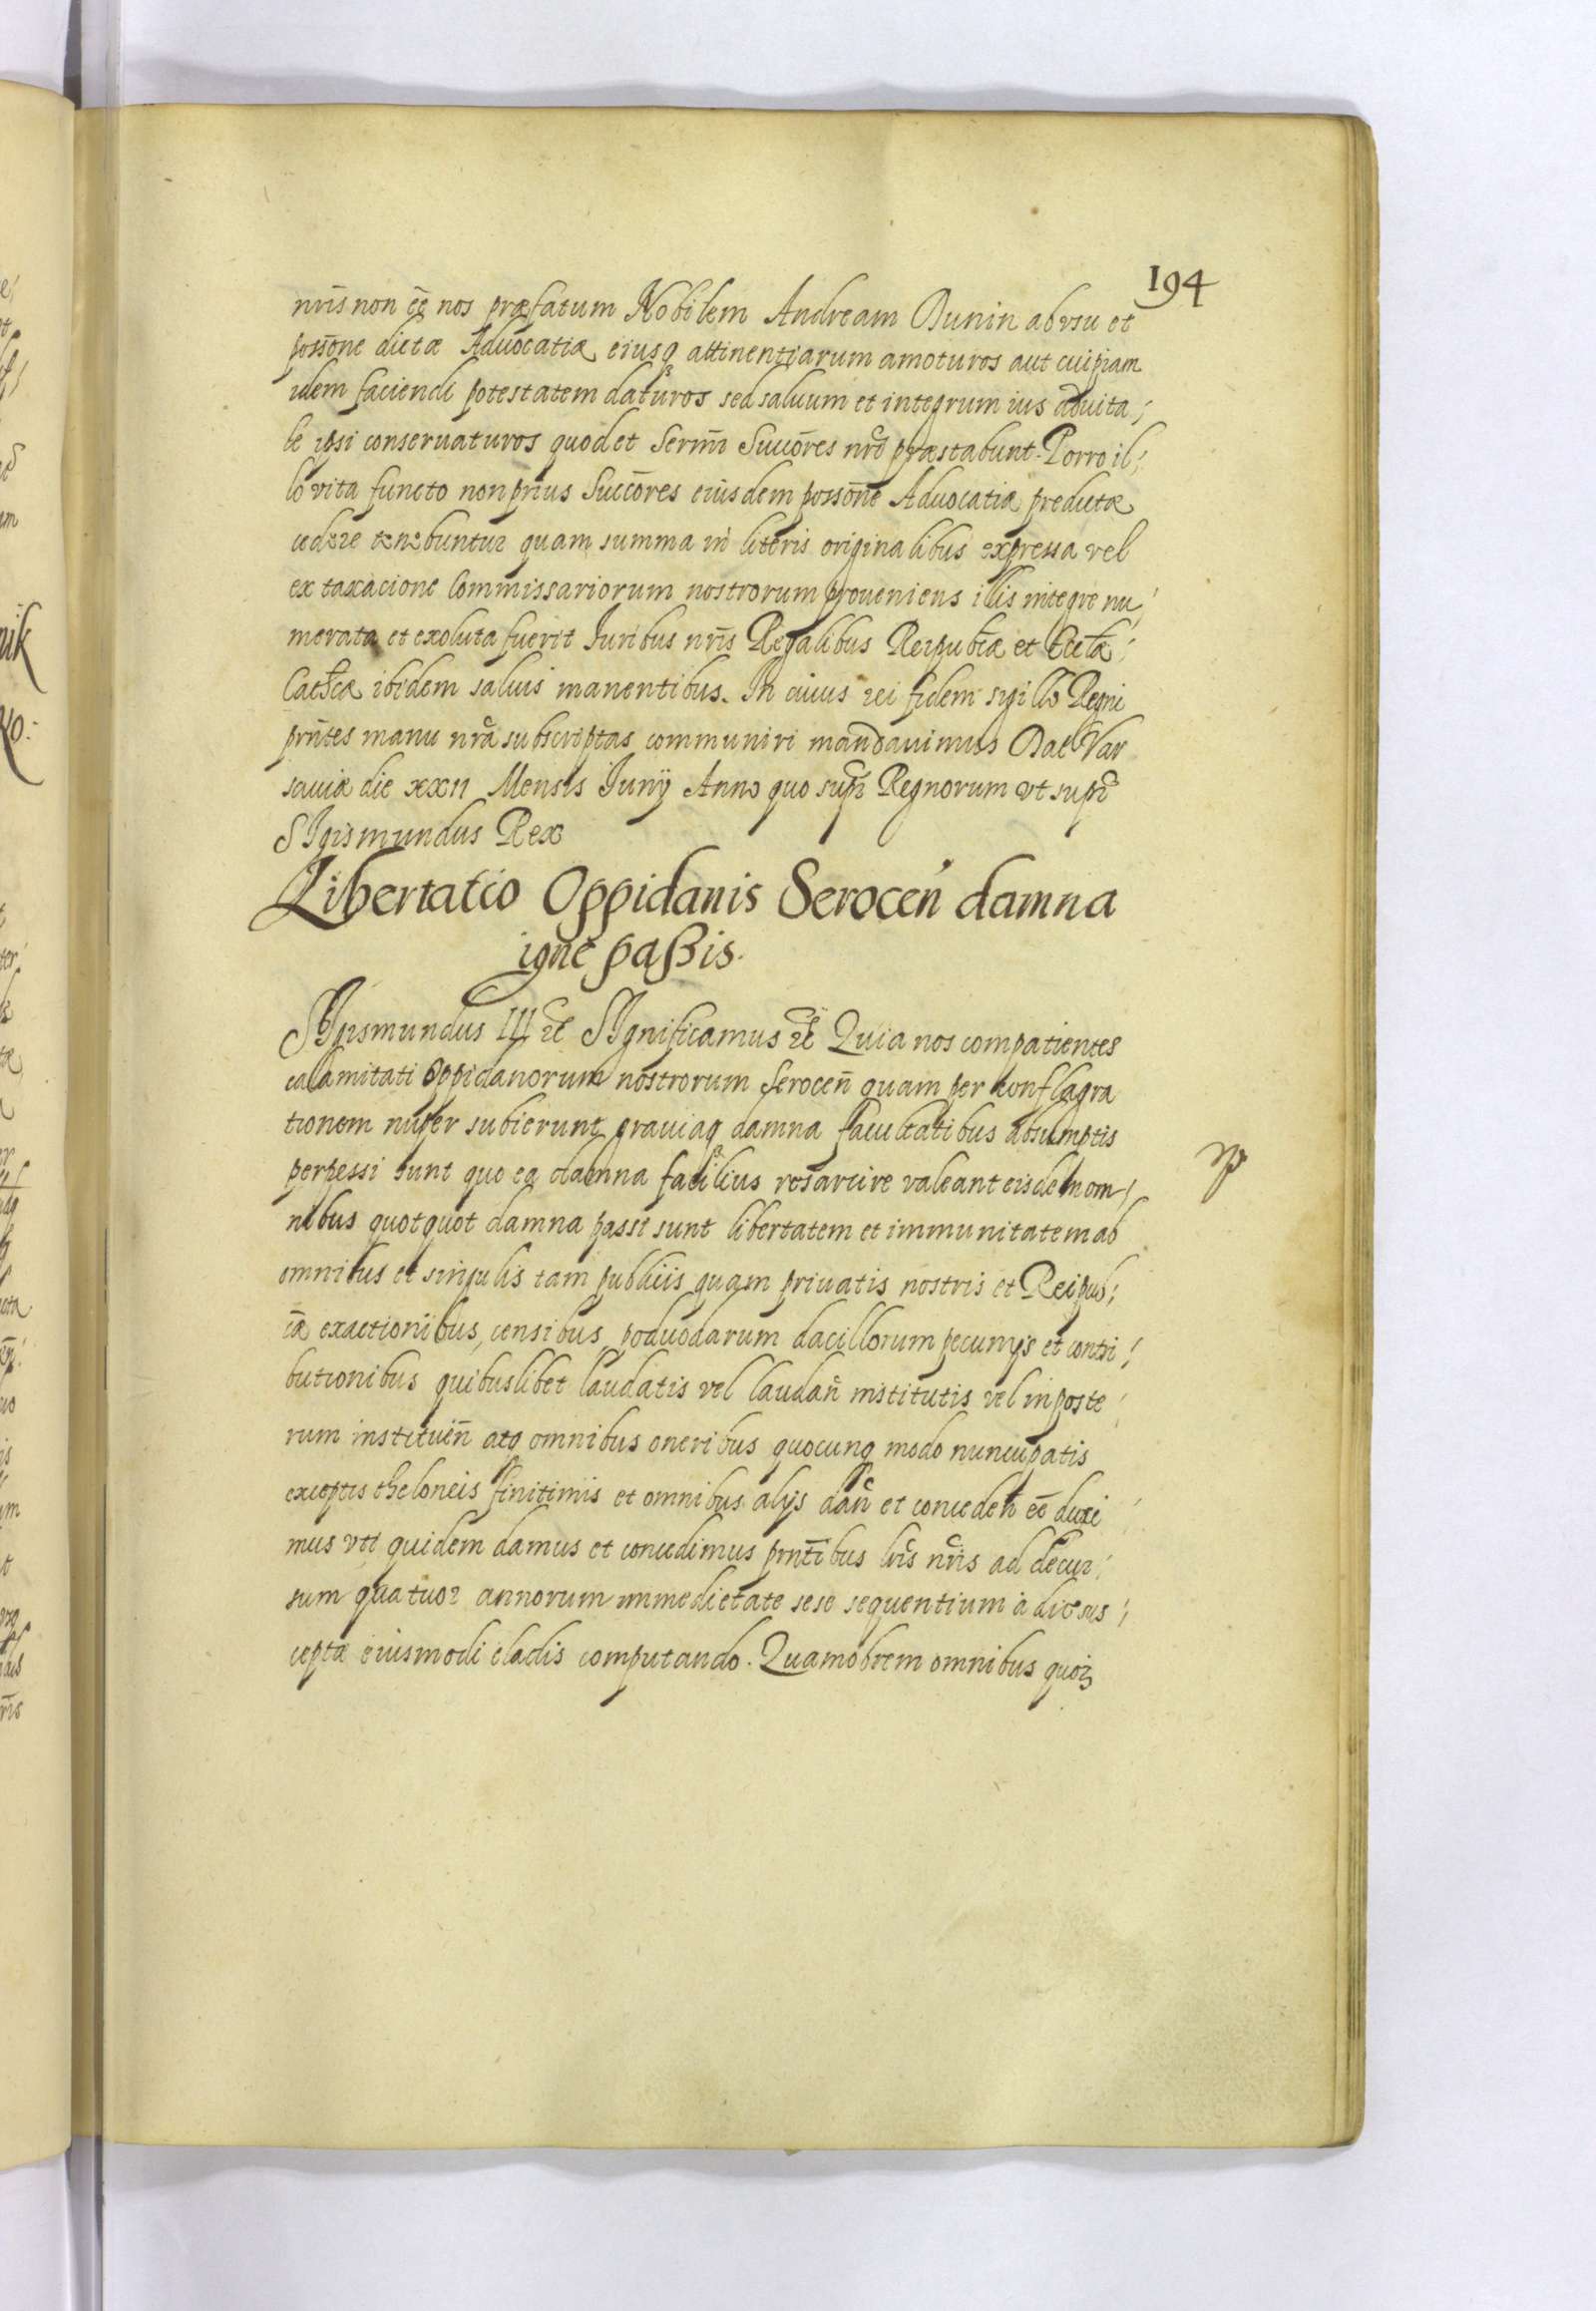 194
nr̃is non eẽ nos præfatum Nobilem Andream Dunin ab vsu et
possõne dictæ Advocatiæ eiusq attinentiarum amoturos aut cuipiam
idem faciendi potestatem daturos sed saluum et integrum ius aduita;
le ipsi conseruaturos quod et Serm̃i Succõres nr̃i præstabunt. Porro il;
lo vita functo non prius Succõres eiusdem possõne Advocatiæ predictæ
cedere tenebuntur quam summa in literis originalibus expressa vel
ex taxacione Commissariorum nostrorum proueniens illis integre nu;
merata et exoluta fuerit Iuribus nr̃is Regalibus Reipub̃æ et Eccl̃æ;
Cath̃cæ ibidem saluis manentibus. In cuius rei fidem sigillo Regni
prñtes manu nr̃a subscriptas communiri mandauimus Dat Var
sauiæ die xxii Mensis Iunij Anno quo supr̃ Regnorum vt supr̃
SIgismundus Rex
Libertatio Oppidanis Serocen̄ damna
igne paßis.
SIgismundus III etc̃ SIgnificamus etc̃ Quia nos compatientes
calamitati Oppidanorum nostrorum Serocen̄ quam per conflagra
tionem nuper subierunt grauiaq damna facultatibus absumptis
perpessi sunt quo ea damna facilius resarcire valeant eisdem om;
nibus quotquot damna passi sunt libertatem et immunitatem ab
omnibus et singulis tam publicis quam priuatis nostris et Reipub;
cæ exactionibus, censibus, poduodarum dacillorum pecunijs et contri;
butionibus quibuslibet laudatis vel laudan̄ institutis vel in poste;
rum instituen̄ atq omnibus oneribus quocunq modo nuncupatis
exceptis theloneis finitimis et omnibus alijs dan̄ et conceden̄ eẽ duxi;
mus vti quidem damus et concedimus prñtibus lr̃is nr̃is ad decur;
sum quatuor annorum immedietate sese sequentium à die sus;
ceptæ eiusmodi cladis computando. Quamobrem omnibus quor̃